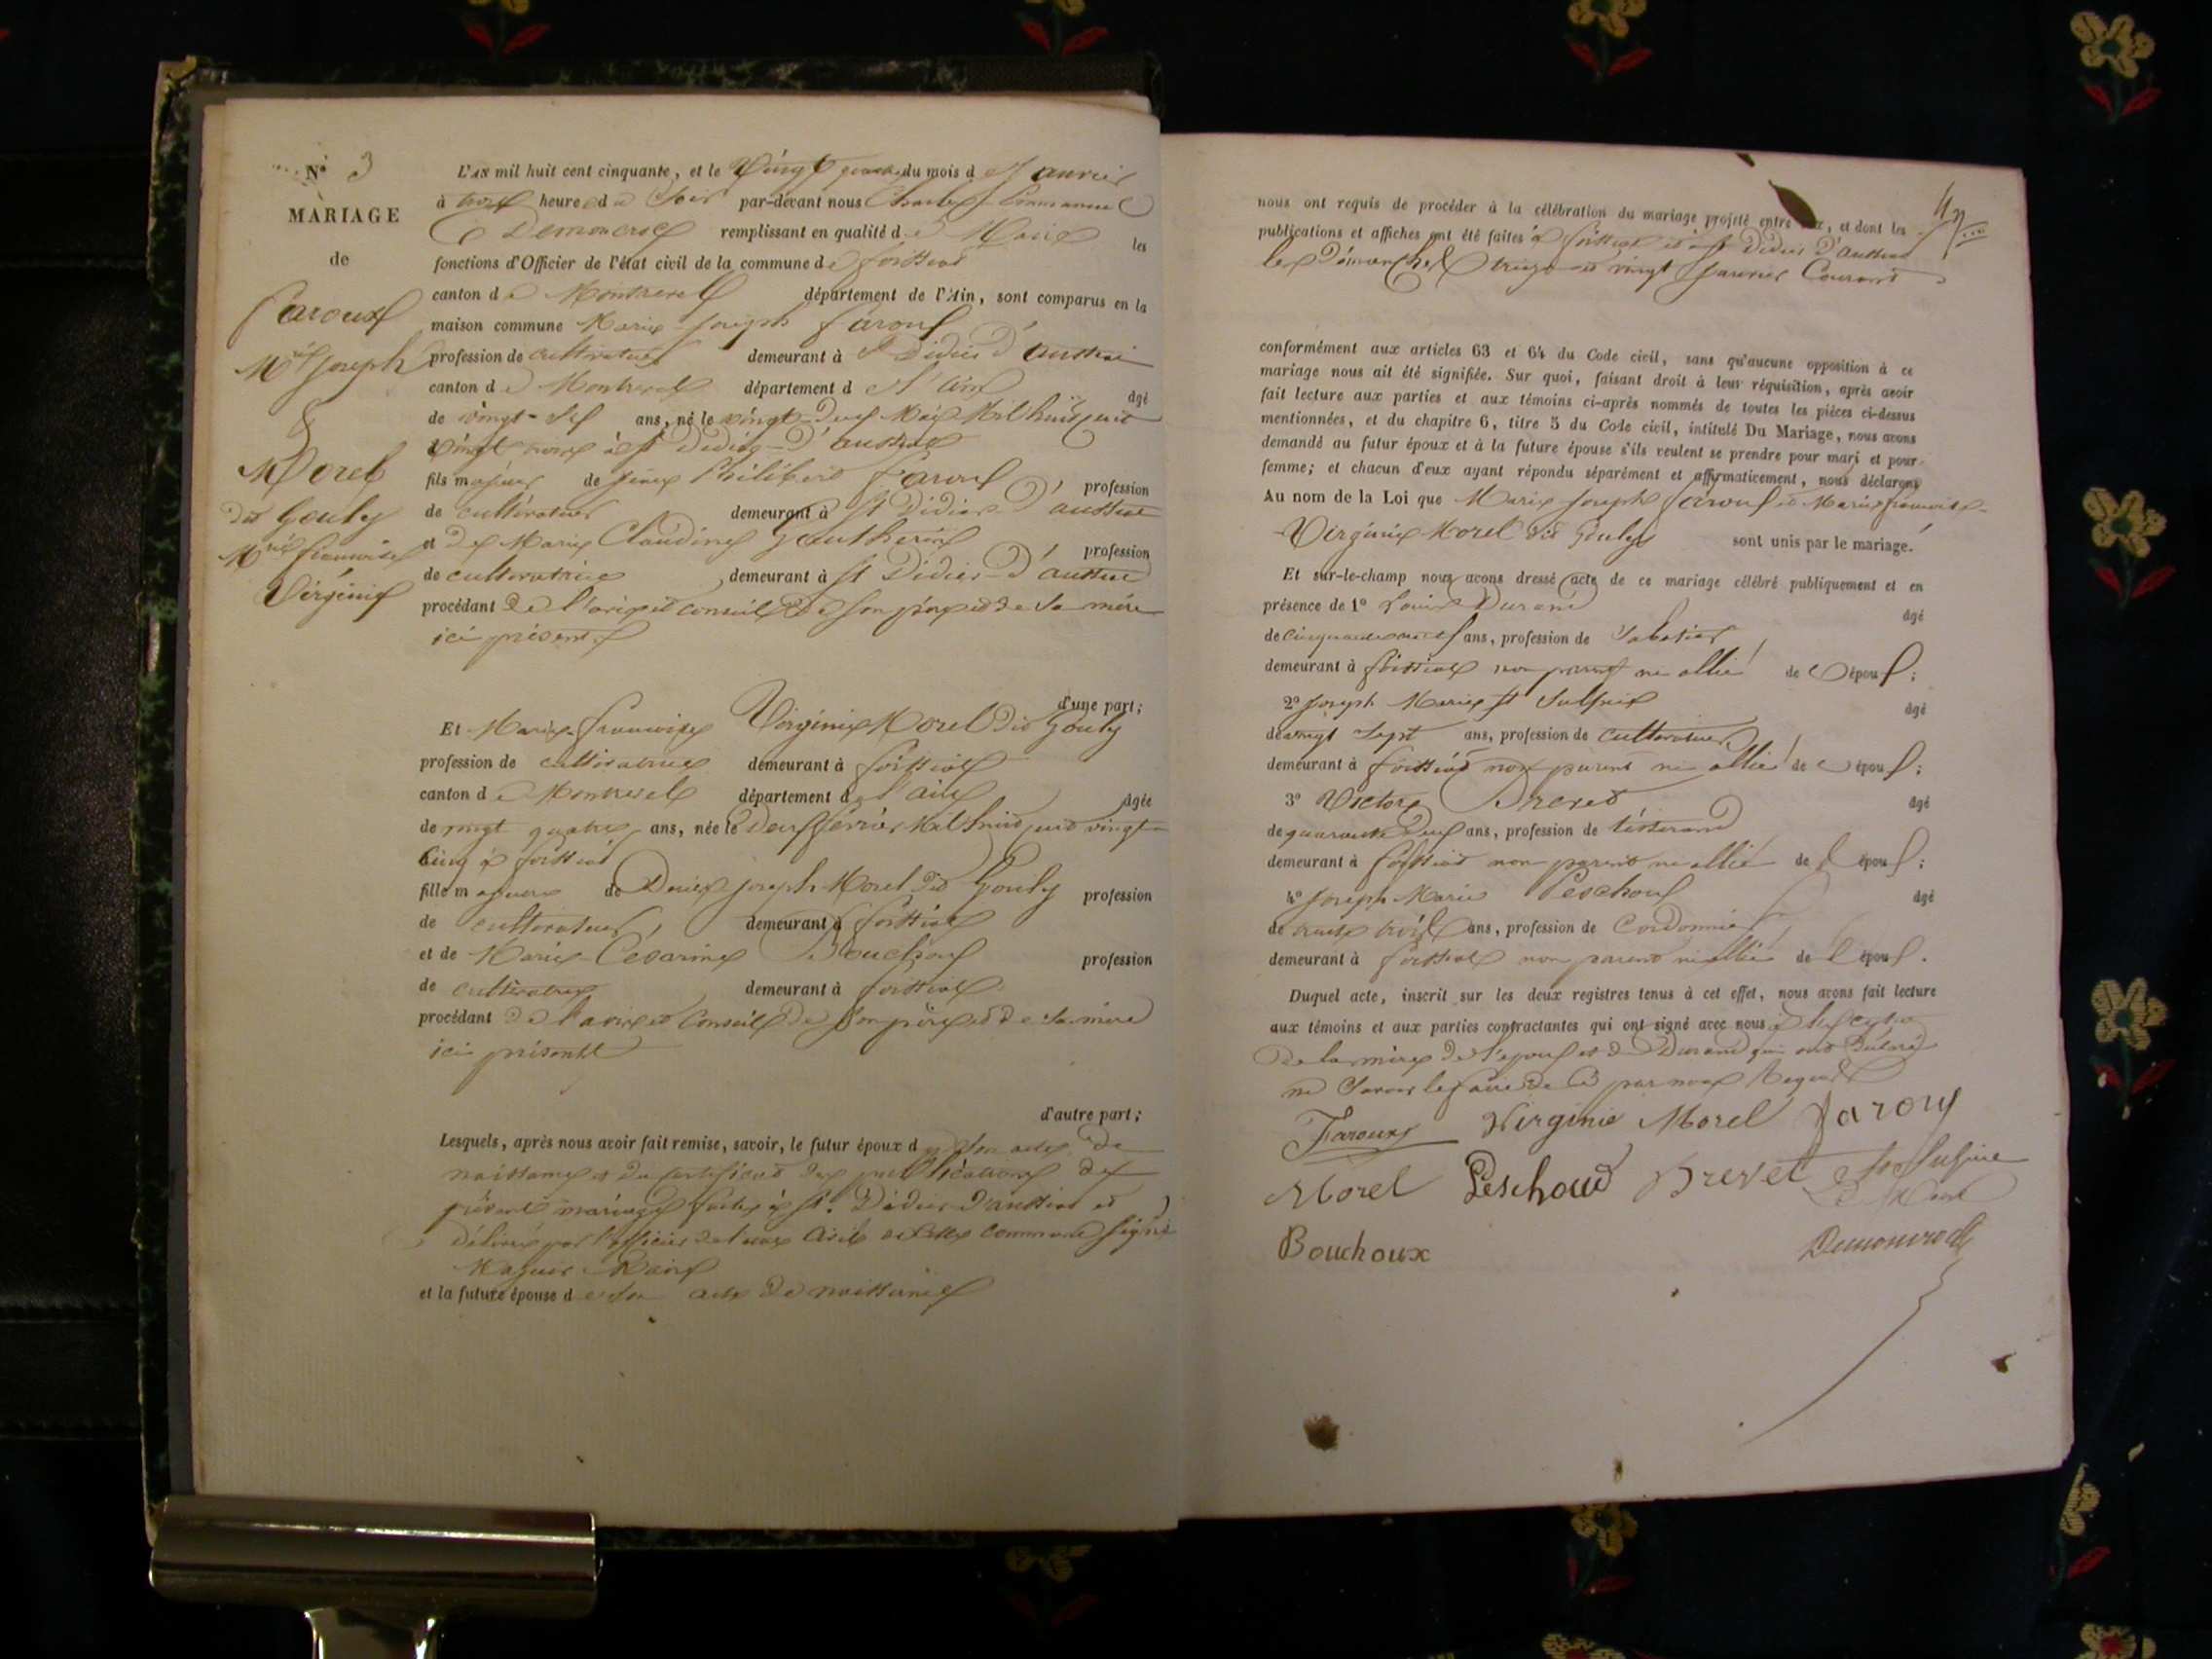 N° 3
MARIAGE
de
Faroux
Mie Joseph
&
Morel
dit Gouly
Mie francoise
Virginie
L'AN mil huit cent cinquante, et le Vingt du mois de Janvier
à trois heures du Soir par-devant nous Charles Emmanuel
remplissant en qualité de Maire les
fonctions d'Officier de l'état civil de la commune de foissiat
canton de Montrevel département de l'Ain, sont comparus en la
maison commune Marie Joseph faroux
profession de cultivateur demeurant à St Didier d'aussiat
canton de Montrevel département de l'ain âgé
de vingt-six ans, né le vingt-deux Mai Mil huit cent
vingt trois à St Didier-d'aussiat
fils majeur de feux Philibert faroux profession
de cultivateur demeurant à St Didier d'aussiat
et de Marie Claudine Gautherin profession
de cultivatrice demeurant à St Didier-d'aussiat
procédant de l'avis et conseil de son père et de sa mère
ici présents
d'une part;
Et Marie-francoise Virginie Morel dit Gouly
profession de cultivatrice demeurant à foissiat
canton de Montrevel département de l'ain âgée
de vingt quatre ans, née le Deux février Mil huit cent vingt-
cinq à foissiat
fille majeure de Denis joseph Morel dit Gouly profession
de cultivateur, demeurant à foissiat
et de Marie-Césarine Bouchoux profession
de cultivatrice demeurant à foissiat
procédant de l'avis et conseil de son père et de sa mère
ici présents
d'autre part;
Lesquels, après nous avoir fait remise, savoir, le futur époux de son acte de
naissance et du certificat des publications des
présent mariage faites à St. Didier-d'aussiat et
délivré par l'officier de l'état civil de cette commune signé
et la future épouse de son acte de naissance
nous ont requis de procéder à la célébration du mariage projeté entre eux, et dont les
publications et affiches ont été faites à foissiat et à St Didier d'aussiat
les Dimanches treize et vingt janvier Courant
conformément aux articles 63 et 64 du Code civil, sans qu'aucune opposition à ce
mariage nous ait été signifiée. Sur quoi, faisant droit à leur réquisition, après avoir
fait lecture aux parties et aux témoins ci-après nommés de toutes les pièces ci-dessus
mentionnées, et du chapitre 6, titre 5 du Code civil, intitulé Du Mariage, nous avons
demandé au futur époux et à la future épouse s'ils veulent se prendre pour mari et pour
femme; et chacun d'eux ayant répondu séparément et affirmativement, nous déclarons
Au nom de la Loi que Marie Joseph faroux et Marie francoise-
Virginie Morel dit Gouly sont unis par le mariage.
Et sur-le-champ nous avons dressé acte de ce mariage célébré publiquement et en
présence de 1° Louis Durand âgé
de cinquante ans, profession de Sabotier
demeurant à foissiat non parent ni allié de l'époux;
2° Joseph Marie St Sulpice âgé
de vingt sept ans, profession de cultivateur
demeurant à foissiat non parent ni allié de l'époux;
3° Victor Brevet âgé
de quarante deux ans, profession de tisserand
demeurant à foissiat non parent ni allié de l'époux;
4° Joseph Marie Peschoux âgé
de trente trois ans, profession de Cordonnier
demeurant à foissiat non parent ni allié de l'époux.
Duquel acte, inscrit sur les deux registres tenus à cet effet, nous avons fait lecture
aux témoins et aux parties contractantes qui ont signé avec nous à l'exception
de la mère de l'époux et de Durand qui ont déclaré
ne savoir le faire de ce par nous requis
Faroux Virginie Morel Faroux
Morel Peschoud Brevet St Sulpice
Le Maire
Bouchoux